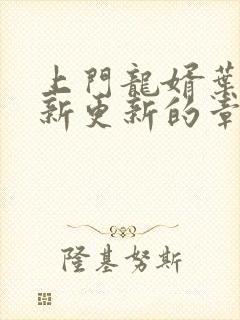 上門龍婿葉
新更新的章
隆基努斯